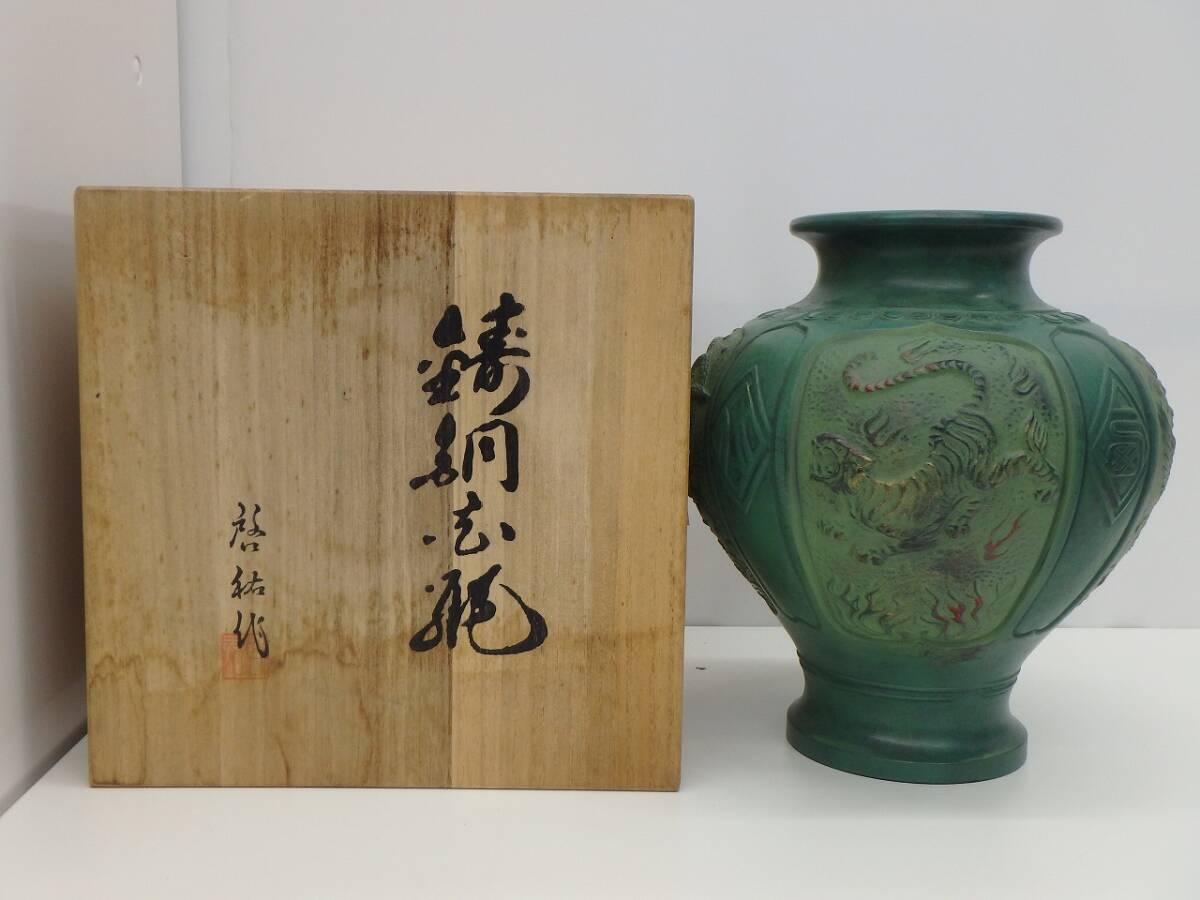 鋳銅花瓶
啓祐作